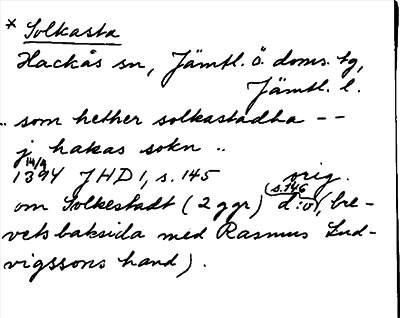 * Solkasta
Hackås sn, Jämtl. ö. doms. tg,
Jämtl. l.
.. som hether solkastadha --
j hakas sokn ..
14/9
1394 JHD 1, s. 145 orig.
om Solkestadt (2 ggr) (s. 146 d:o, bre-
vets baksida med Rasmus Lud-
vigssons hand).